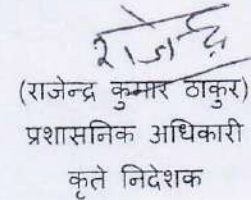 राजेन्द्र
(राजेन्द्र कुमार ठाकुर)
प्रशासनिक अधिकारी
कृते निदेशक